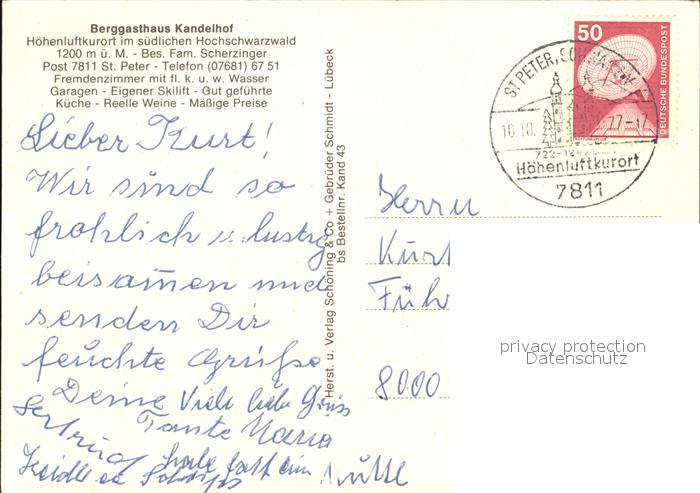 Berggasthaus Kandelhof
Höhenluftkurort im südlichen Hochschwarzwald
1200 m ü. M. - Bes. Fam. Scherzinger
Post 7811 St. Peter - Telefon (07681) 67 51
Fremdenzimmer mit fl. k. u. w. Wasser
Garagen - Eigener Skilift - Gut geführte
Küche - Reelle Weine - Mäßige Preise
Lieber Kurt!
Wir sind so
fröhlich u. lustig
beisam̄en und
senden Dir
feuchte Grüße
Deine Viele liebe Grüss
Gertrud Tante Maria
Herst. u. Verlag Schöning & Co + Gebrüder Schmidt - Lübeck
bs Bestellnr. Kand 43
50
DEUTSCHE BUNDESPOST
ST PETER, SCHWARZW
10.10. 77-17
Höhenluftkurort
7811
Herrn
Kurt
Führ
8000
privacy protection
Datenschutz